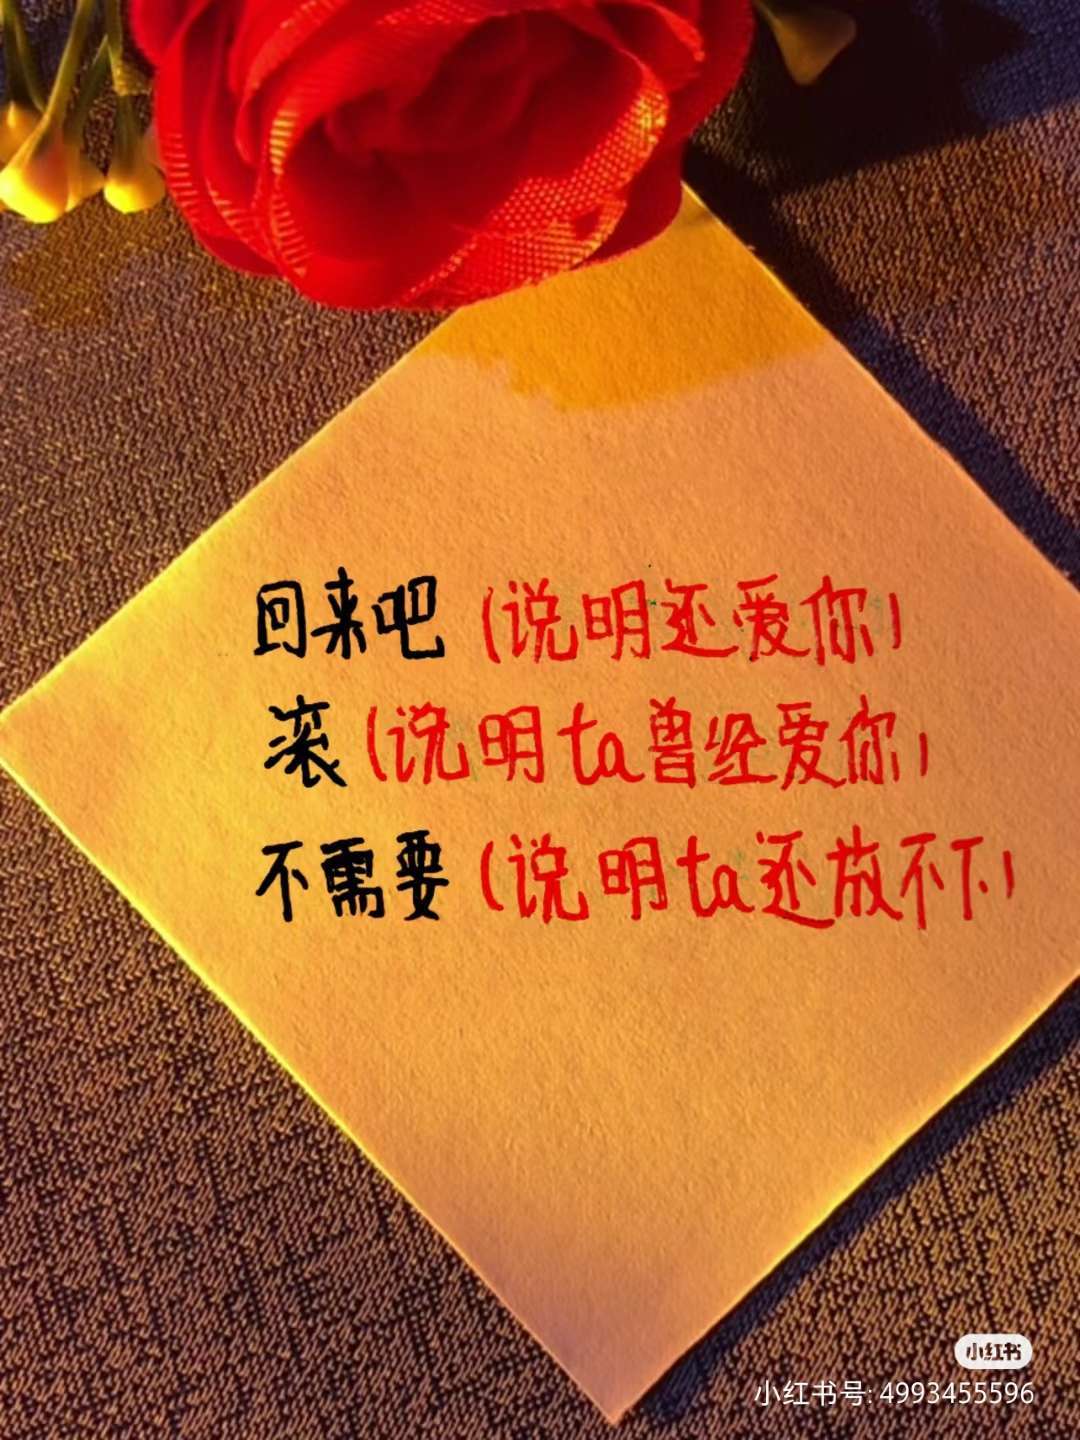 回来吧(说明还爱你)
滚(说明ta曾经爱你)
不需要(说明ta还放不下)
小红书
小红书号: 4993455596